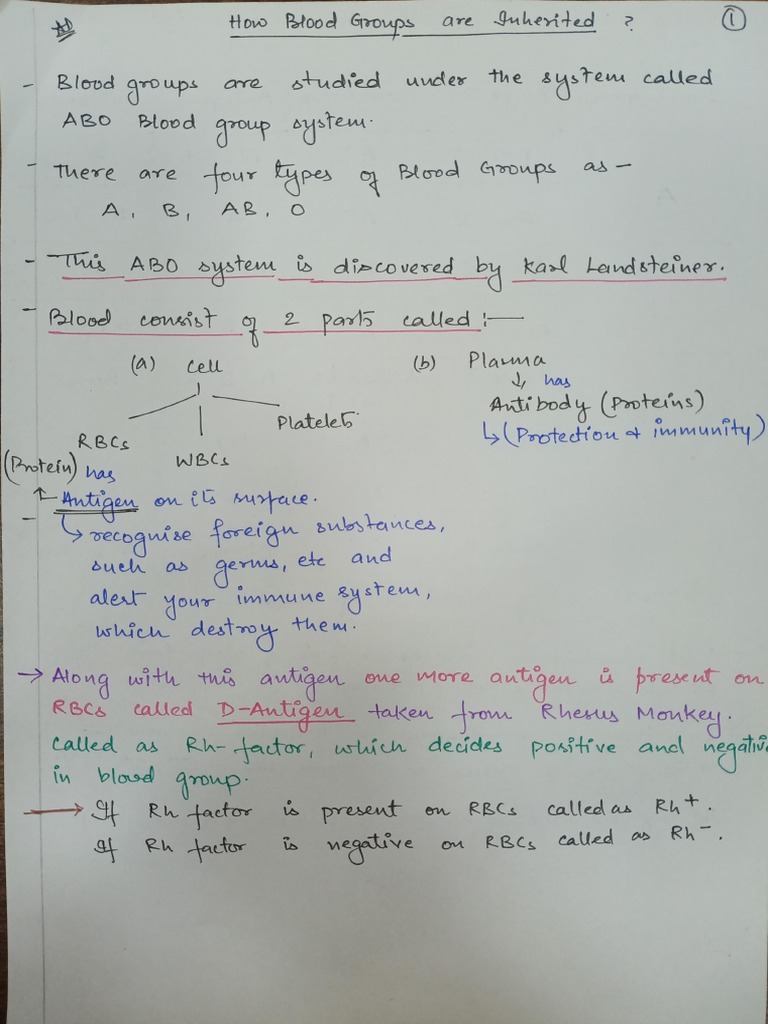 How Blood Groups are Inherited ? 1
- Blood groups are studied under the system called
ABO Blood group system.
- There are four types of Blood Groups as -
A, B, AB, O
- This ABO system is discovered by Karl Landsteiner.
- Blood consist of 2 parts called :-
(a) Cell (b) Plasma
↓ has
Antibody (Proteins)
↳ (Protection & immunity)
RBCs WBCs Platelets
(Protein) has
Antigen on its surface.
- ↳ recognise foreign substances,
such as germs, etc and
alert your immune system,
which destroy them.
→ Along with this antigen one more antigen is present on
RBCs called D-Antigen taken from Rhesus Monkey.
Called as Rh-factor, which decides positive and negative
in blood group.
→ If Rh factor is present on RBCs called as Rh+.
If Rh factor is negative on RBCs called as Rh-.